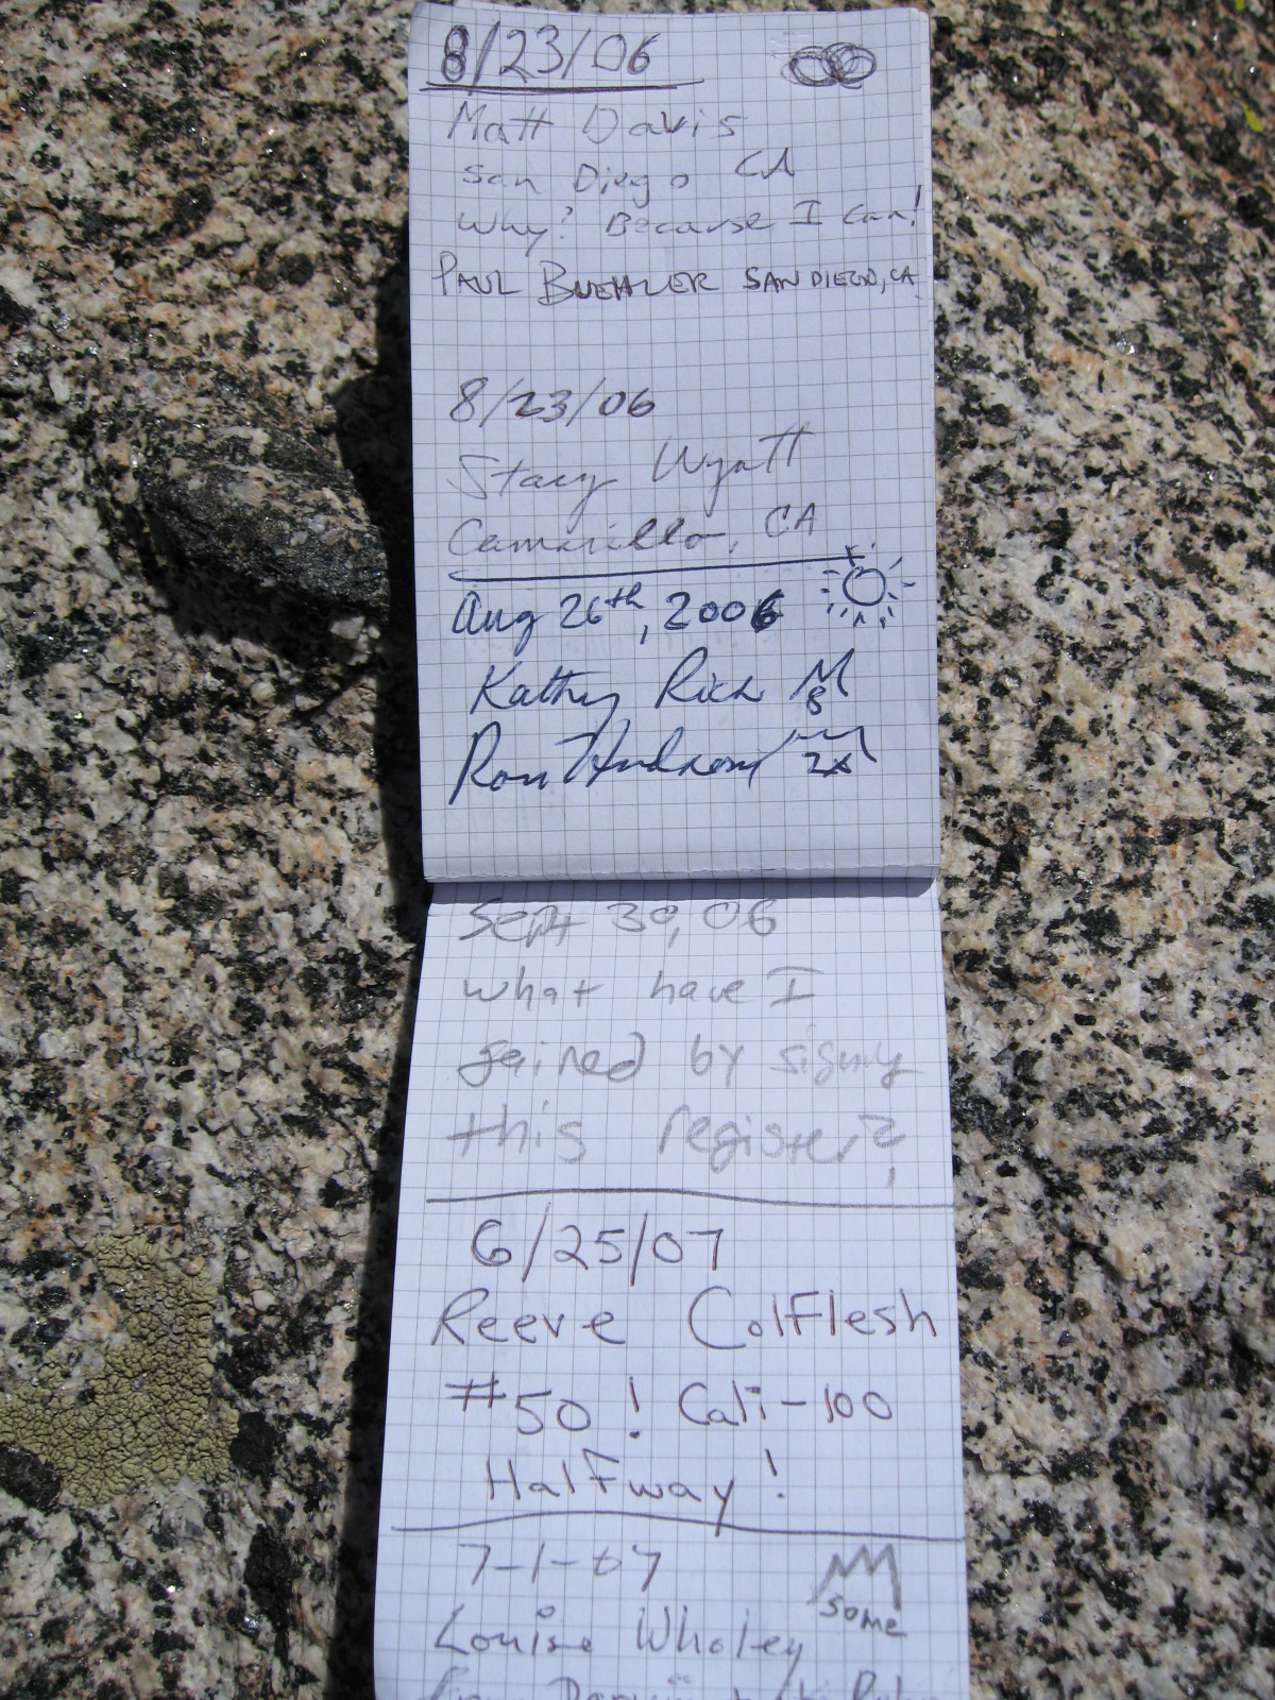 8/23/06
Matt Davis
San Diego CA
Why? Because I Can!
PAUL BUEHLER SAN DIEGO, CA
8/23/06
Stacy Wyatt
Camarillo, CA
Aug 26th, 2006
Kathy Rich M
8
Ron Hudson
2x
Sept 30, 06
What have I
gained by signing
this register?
6/25/07
Reeve Colflesh
#50! Cali-100
Halfway!
7-1-07
some
Louise Wholey